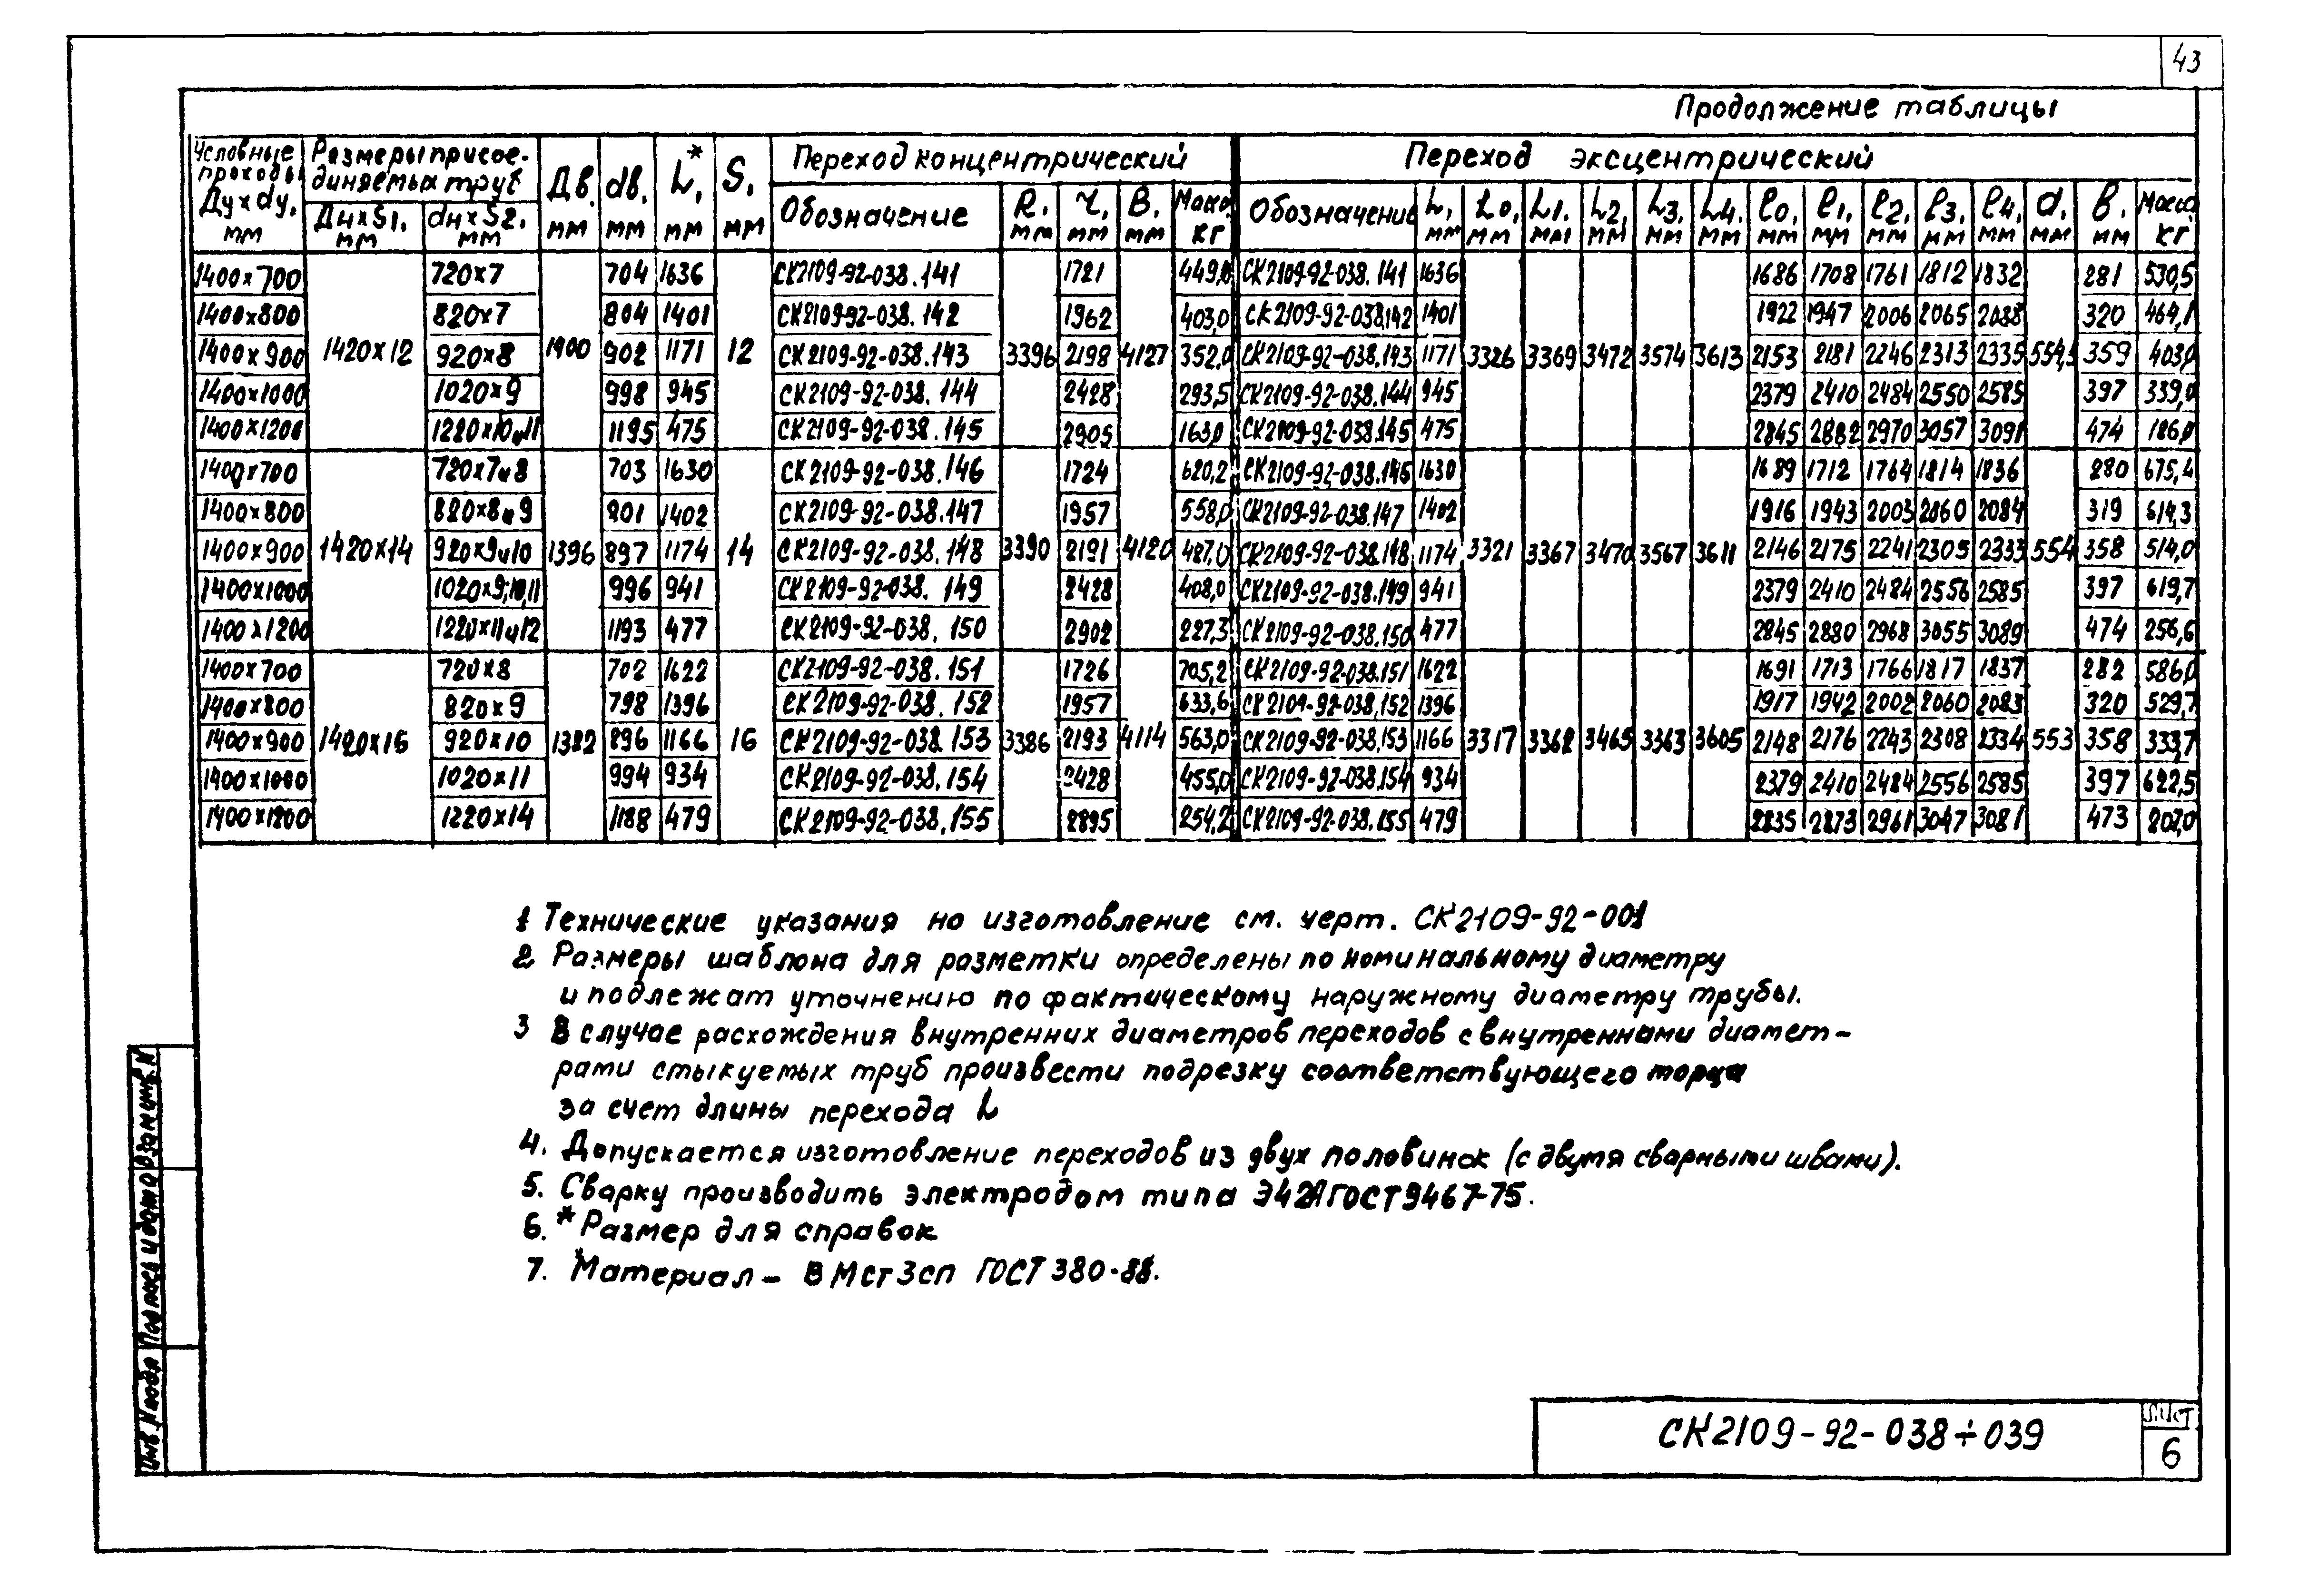 43
Продолжение таблицы
Условные проходы Ду×dу, мм | Размеры присоединяемых труб | Дв. мм | dв. мм | L*, мм | S. мм | Переход концентрический | Переход эксцентрический
Дн×S1. мм | dн×S2. мм | Обозначение | R. мм | r. мм | B. мм | Масса кг | Обозначение | L, мм | L0, мм | L1. мм | L2, мм | L3. мм | L4. мм | l0. мм | l1. мм | l2. мм | l3. мм | l4. мм | d. мм | b. мм | Масса кг
1400×700 720×7 704 1636 СК2109-92-038.141 1721 449,0 СК2109-92-038.141 1636 1686 1708 1761 1812 1832 281 530,5
1400×800 820×7 804 1401 СК2109-92-038.142 1962 403,0 СК2109-92-038.142 1401 1922 1947 2006 2065 2088 320 464,1
1400×900 1420×12 920×8 1400 902 1171 12 СК2109-92-038.143 3396 2198 4127 352,0 СК2109-92-038.143 1171 3326 3369 3472 3574 3613 2153 2181 2246 2313 2335 554,5 359 403,0
1400×1000 1020×9 998 945 СК2109-92-038.144 2428 293,5 СК2109-92-038.144 945 2379 2410 2484 2550 2585 397 339,0
1400×1200 1220×10и11 1195 475 СК2109-92-038.145 2905 163,0 СК2109-92-038.145 475 2845 2882 2970 3057 3091 474 186,0
1400×700 720×7и8 703 1630 СК2109-92-038.146 1724 620,2 СК2109-92-038.146 1630 1689 1712 1764 1814 1836 280 675,4
1400×800 820×8и9 801 1402 СК2109-92-038.147 1957 558,0 СК2109-92-038.147 1402 1916 1943 2003 2060 2084 319 614,3
1400×900 1420×14 920×9и10 1396 897 1174 14 СК2109-92-038.148 3390 2191 4120 487,0 СК2109-92-038.148 1174 3321 3367 3470 3567 3611 2146 2175 2241 2305 2333 554 358 514,0
1400×1000 1020×9;10,11 996 941 СК2109-92-038.149 2428 408,0 СК2109-92-038.149 941 2379 2410 2484 2556 2585 397 619,7
1400×1200 1220×11и12 1193 477 СК2109-92-038.150 2902 227,3 СК2109-92-038.150 477 2845 2880 2968 3055 3089 474 256,6
1400×700 720×8 702 1622 СК2109-92-038.151 1726 705,2 СК2109-92-038.151 1622 1691 1713 1766 1817 1837 282 586,0
1400×800 820×9 798 1396 СК2109-92-038.152 1957 633,6 СК2109-92-038.152 1396 1917 1942 2002 2060 2083 320 529,7
1400×900 1420×16 920×10 1382 896 1166 16 СК2109-92-038.153 3386 2193 4114 563,0 СК2109-92-038.153 1166 3317 3362 3465 3363 3605 2148 2176 2243 2308 2334 553 358 333,7
1400×1000 1020×11 994 934 СК2109-92-038.154 2428 455,0 СК2109-92-038.154 934 2379 2410 2484 2556 2585 397 622,5
1400×1200 1220×14 1188 479 СК2109-92-038.155 2895 254,2 СК2109-92-038.155 479 2835 2873 2961 3047 3081 473 202,0
1 Технические указания на изготовление см. черт. СК2109-92-001
2 Размеры шаблона для разметки определены по номинальному диаметру
и подлежат уточнению по фактическому наружному диаметру трубы.
3 В случае расхождения внутренних диаметров переходов с внутренними диамет-
рами стыкуемых труб произвести подрезку соответствующего торца
за счет длины перехода L
4. Допускается изготовление переходов из двух половинок (с двумя сварными швами).
5. Сварку производить электродом типа Э42А ГОСТ 9467-75.
6. * Размер для справок
7. Материал – ВМст3сп ГОСТ 380-88.
Инв.№подл Подпись и дата Взам инв.N
СК2109-92-038÷039
Лист
6